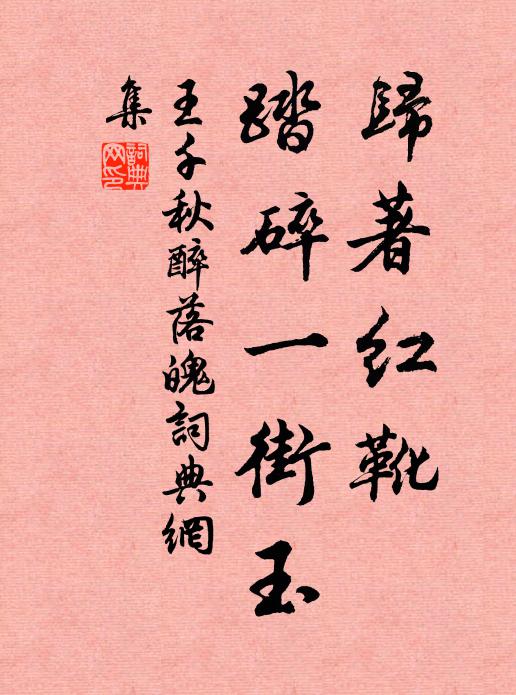 歸著紅靴
踏碎一街玉
王千秋醉落魄詞典網
集
詞典
网印